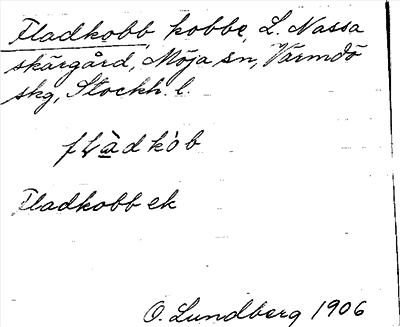 Fladkobb, kobbe, L. Nassa
skärgård, Möja sn, Värmdö
skg, Stockh. l.
flàdkòb
Fladkobb ek
O. Lundberg 1906